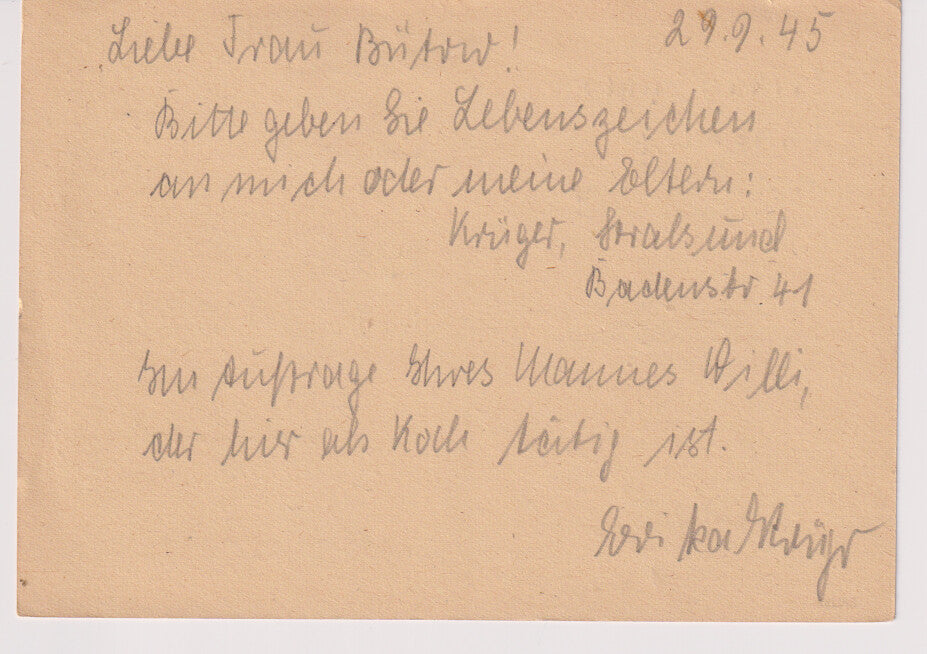 29.9.45
Liebe Frau Bütow!
Bitte geben Sie Lebenszeichen
an mich oder meine Eltern:
Krüger, Stralsund
Badenstr. 41
Im Auftrage Ihres Mannes Willi,
der hier als Koch tätig ist.
Erika Krüger